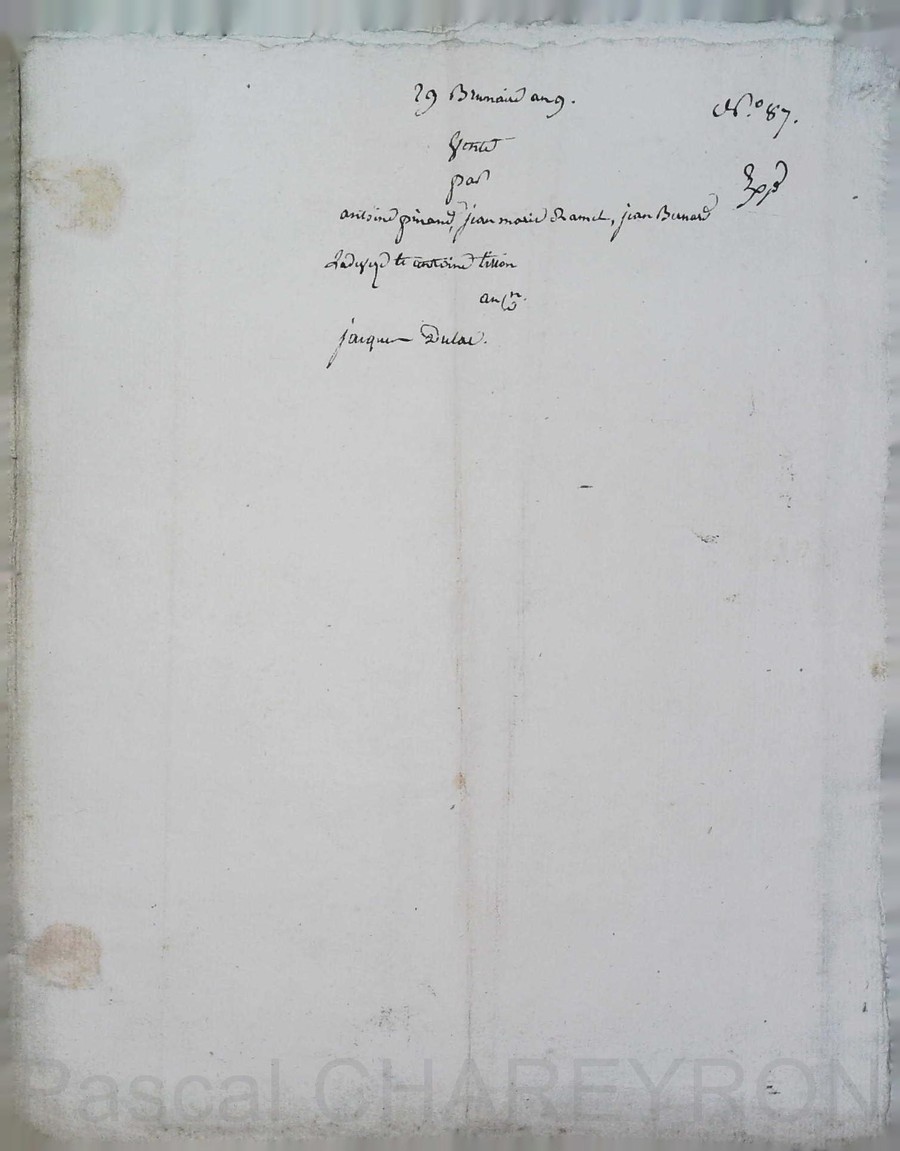 29 Brumaire an 9.
N.º 87.
Vente
par
Exp.
antoine pinand, jean marie Ramel, jean Bernard
et antoine tisson
au C.n
jacques Dulac.
Pascal CHAREYRON